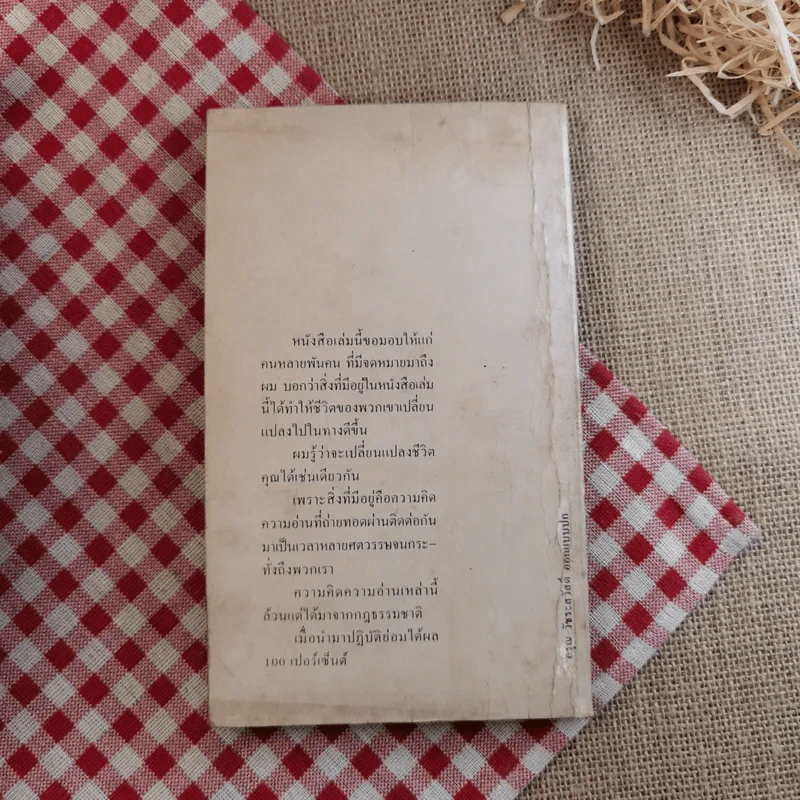 หนังสือเล่มนี้ขอมอบให้แก่
คนหลายพันคน ที่มีจดหมายมาถึง
ผม บอกว่าสิ่งที่มีอยู่ในหนังสือเล่ม
นี้ได้ทำให้ชีวิตของพวกเขาเปลี่ยน
แปลงไปในทางดีขึ้น
ผมรู้ว่าจะเปลี่ยนแปลงชีวิต
คุณได้เช่นเดียวกัน
เพราะสิ่งที่มีอยู่คือความคิด
ความอ่านที่ถ่ายทอดผ่านติดต่อกัน
มาเป็นเวลาหลายศตวรรษจนกระ-
ทั่งถึงพวกเรา
ความคิดความอ่านเหล่านี้
ล้วนแต่ได้มาจากกฎธรรมชาติ
เมื่อนำมาปฏิบัติย่อมได้ผล
100 เปอร์เซ็นต์
อรุณ วัชระสวัสดิ์ ออกแบบปก